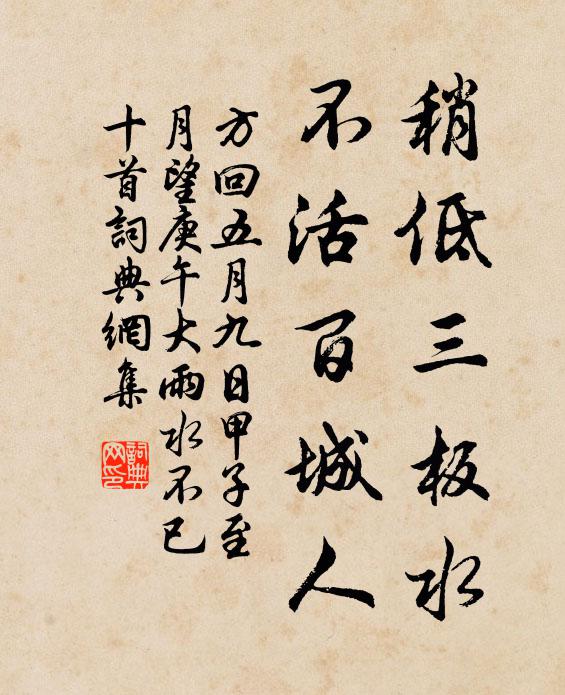 稍低三板水
不活百城人
方回五月九日甲子至
月望庚午大雨水不已
十首詞典網集
詞典
网印